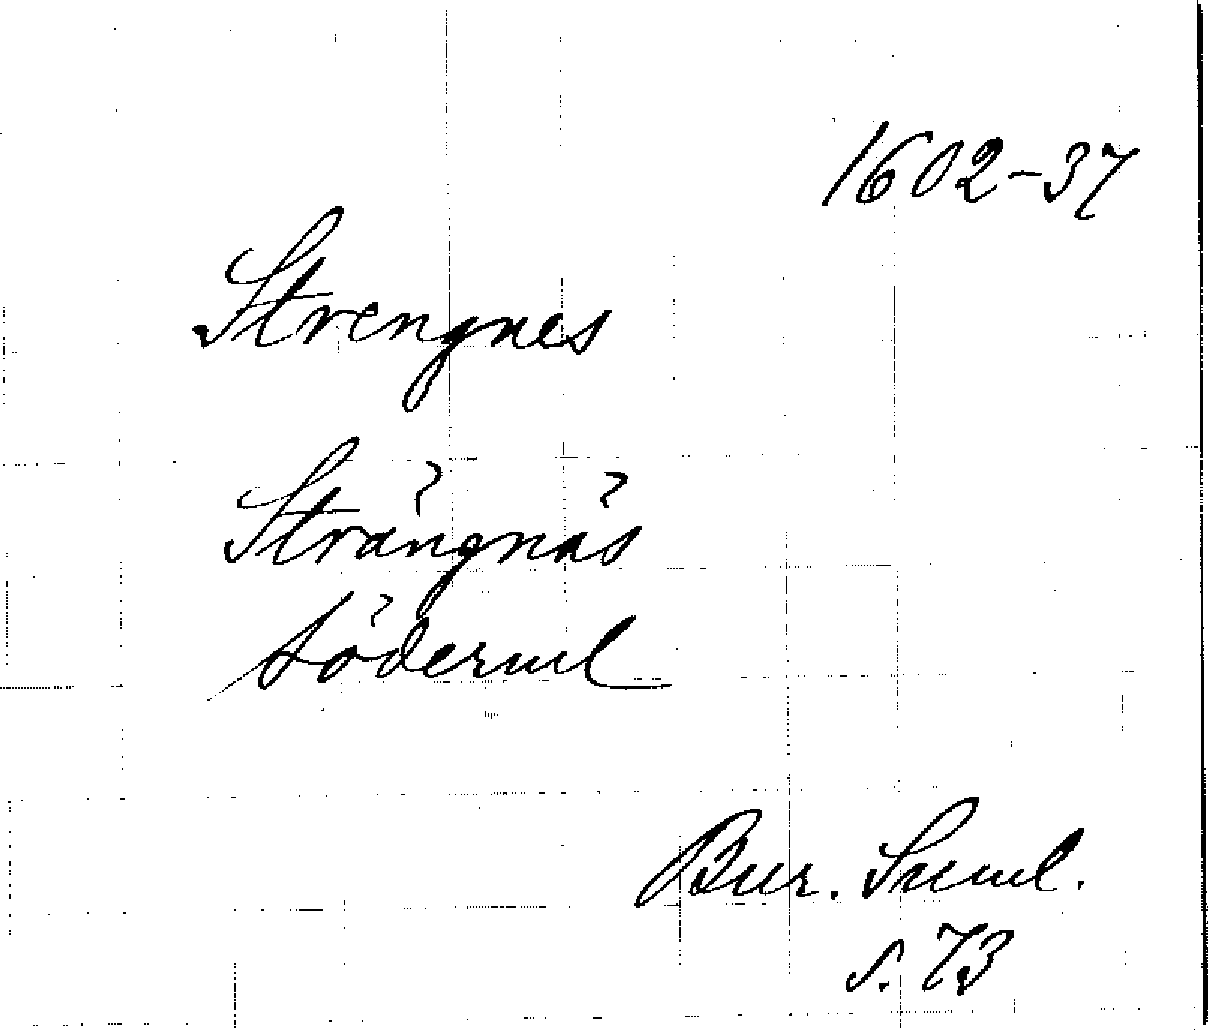 1602-37
Strengnes
Strängnäs
Söderml
Bur. Suml.
s. 73